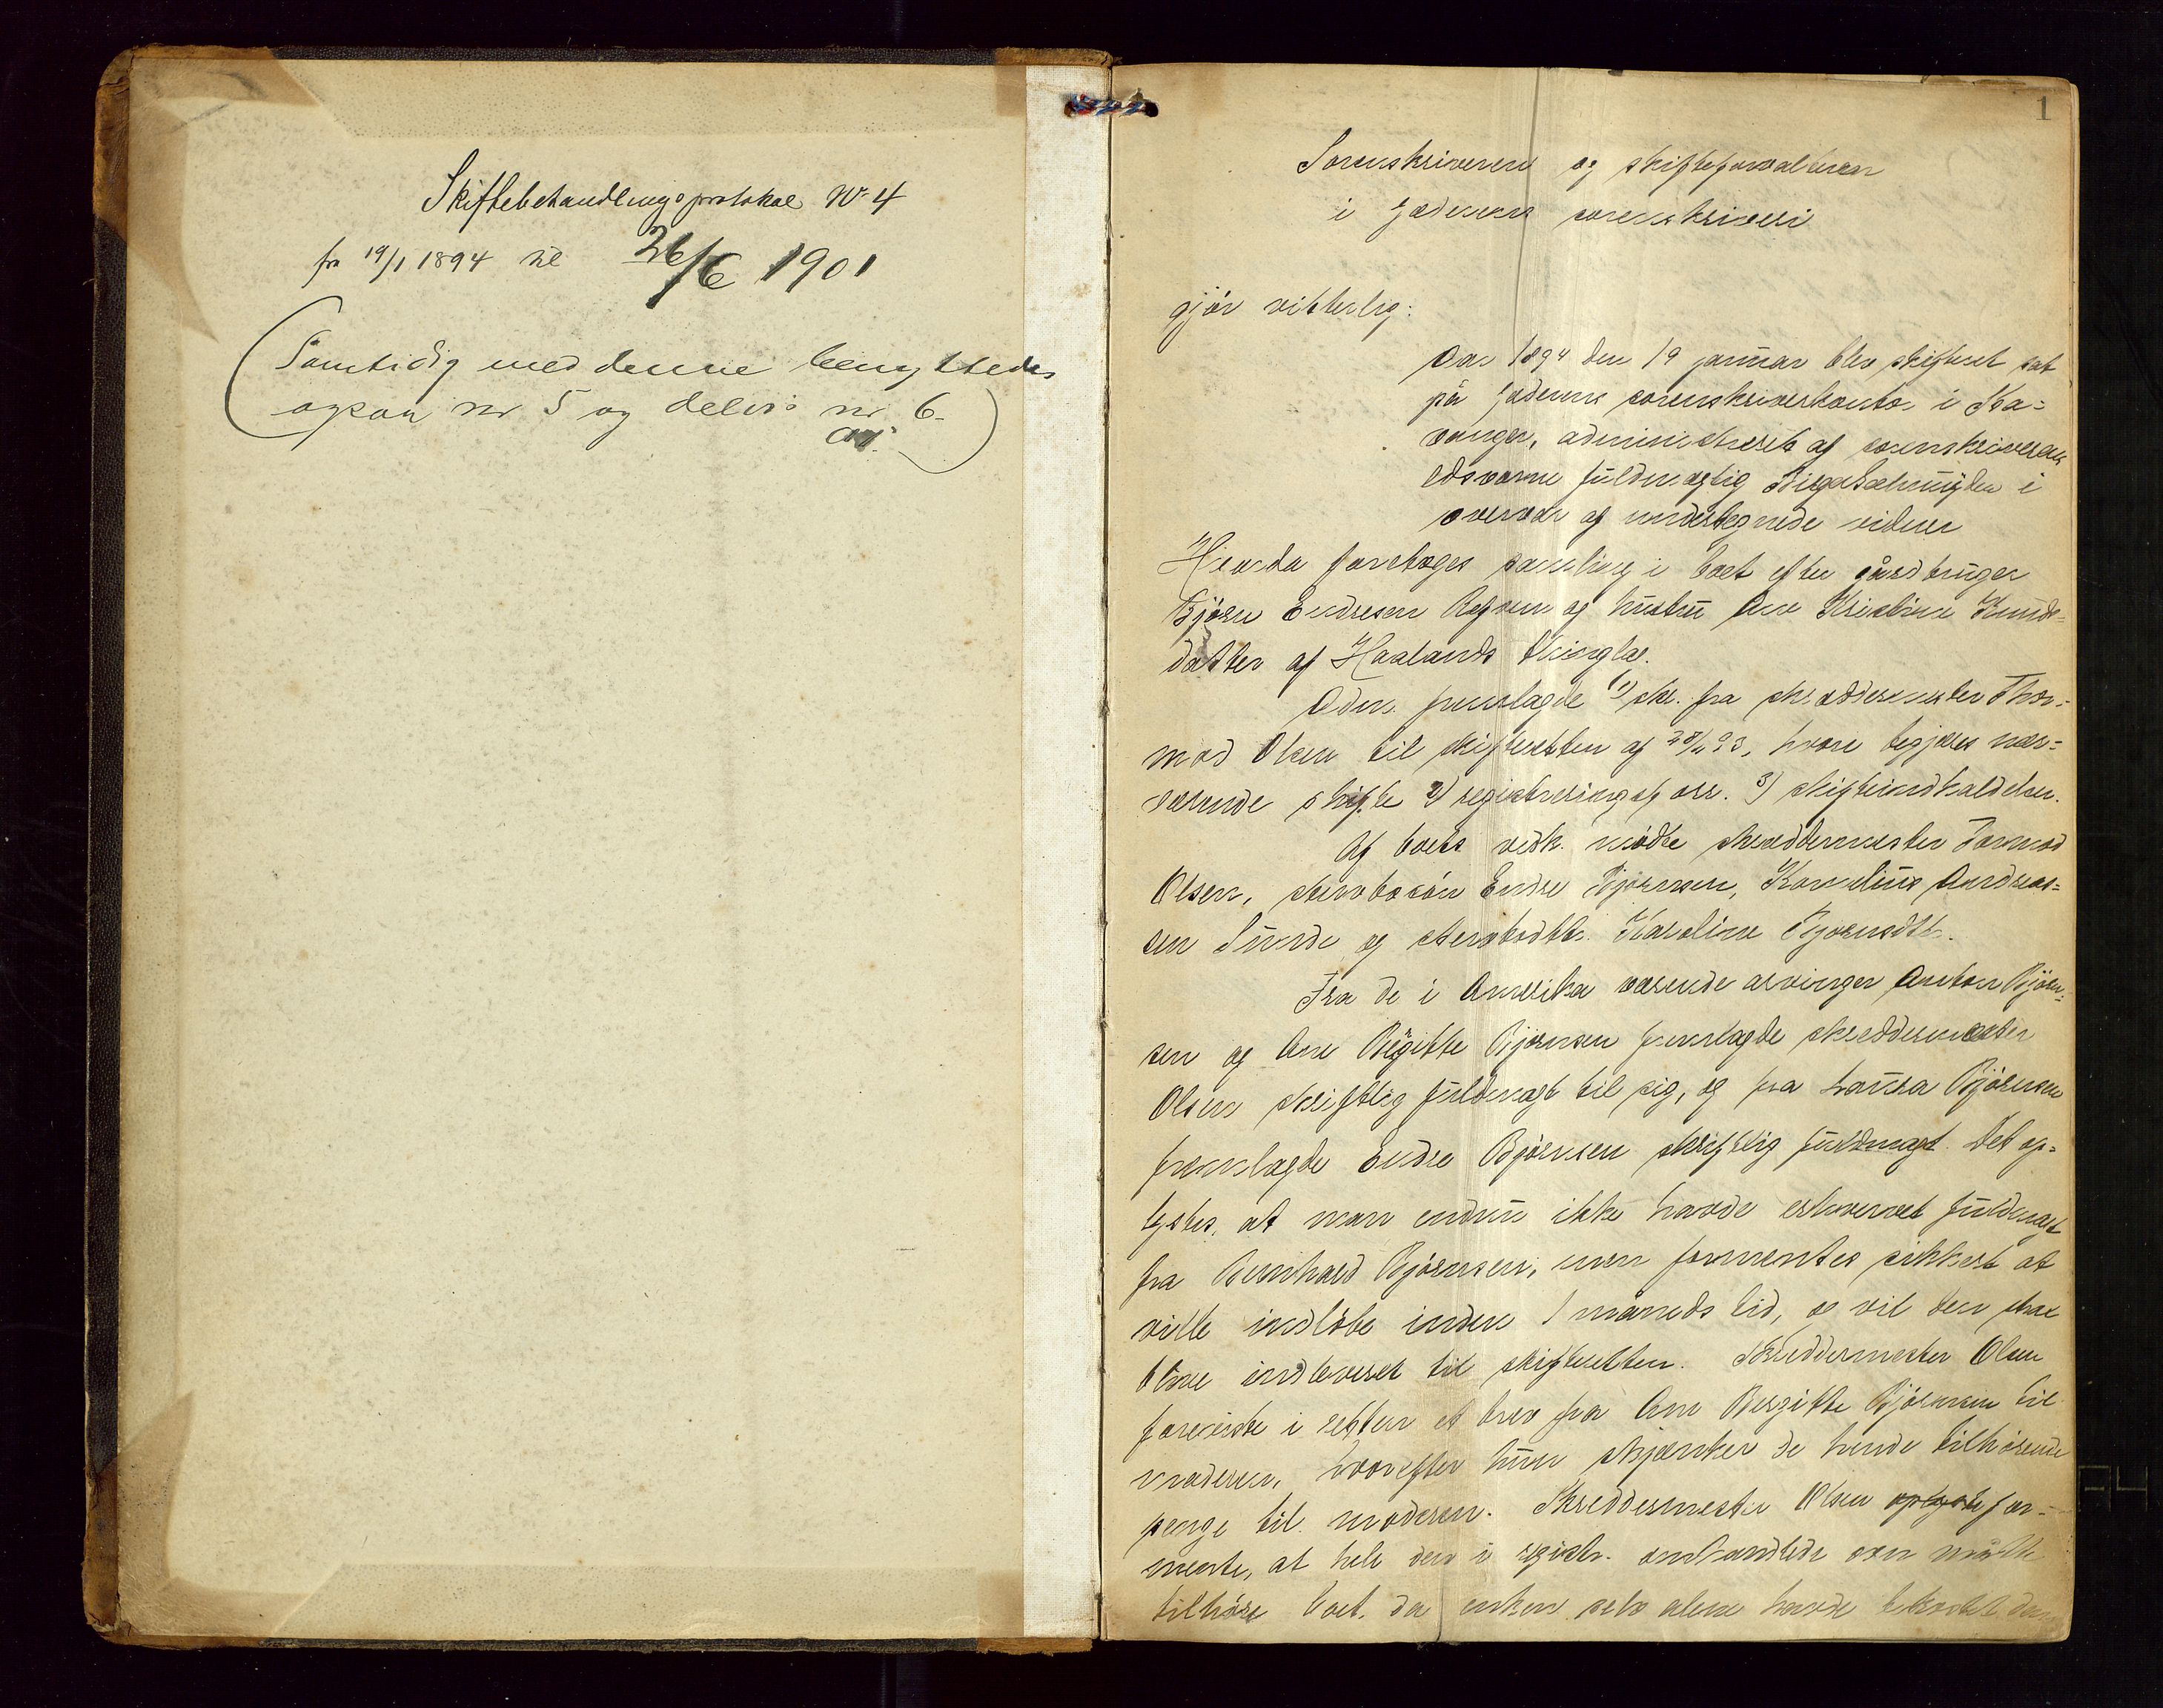 Skiftebehandlingsprotokol No 4
fra 19/1 1894 til 26/6 1901
(Samtidig med denne benyttedes
ogsaa nr 5 og delvis nr 6.)
1
Sorenskriveren og skifteforvalteren
i Jæderens sorenskriveri
gjör vitterlig:
Aar 1894 den 19 januar blev skifteret sat
på Jæderens sorenskriverkontor i Sta=
vanger, administreret af sorenskriverens
edsvorne fuldmægtig Birger in i
overvær af undertegnede vidner
Hvorda foretoges samling i boet efter gårdbruger
Bjørn Endresen og hustru Ane Kristine Knuds=
datter af Haalands thinglag.
Adm. fremlagde 1) skr. fra skræddermester Thor=
mod Olsen til skifteretten af 93, hvori begjæres nær=
værende skifte 2) registreringsforr. 3) skifteindkaldelse.
Af boets vedk. mødte skreddermester Tormod
Olsen, stervbosön Endre Bjørnsen, Kornelius Andreas=
sen Sunde og stervbodtr. Karoline Bjørnsdtr.
Fra de i Amerika værende arvinger Anton Björn=
sen og Ane Birgitte Bjørnsen fremlagde skreddermester
Olsen skriftlig fuldmagt til sig, og fra Laura Bjørnsen
fremlagde Endre Bjørnsen skriftlig fuldmagt. Det op=
lystes, at man endnu ikke havde erhvervet fuldmagt
fra Bernhard Bjørnsen, men formentes sikkert at
ville indløbe inden 1 måneds tid, og vil den skal
blive indleveret til skifteretten. Skreddermester Olsen
foreviste i retten et brev fra Ane Birgitte Bjørnsen til
moderen, hvorefter hun skjænker de hende tilhörende
penge til moderen. Skreddermester Olsen oplyste for=
mente, at hele den i registr. omhandlede ovn måtte
tilhöre boet, da enken selv alene havde bekostet den